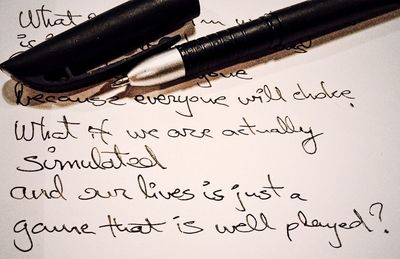 What
is
everyone
because everyone will choke.
What if we are actually
simulated
and our lives is just a
game that is well played?